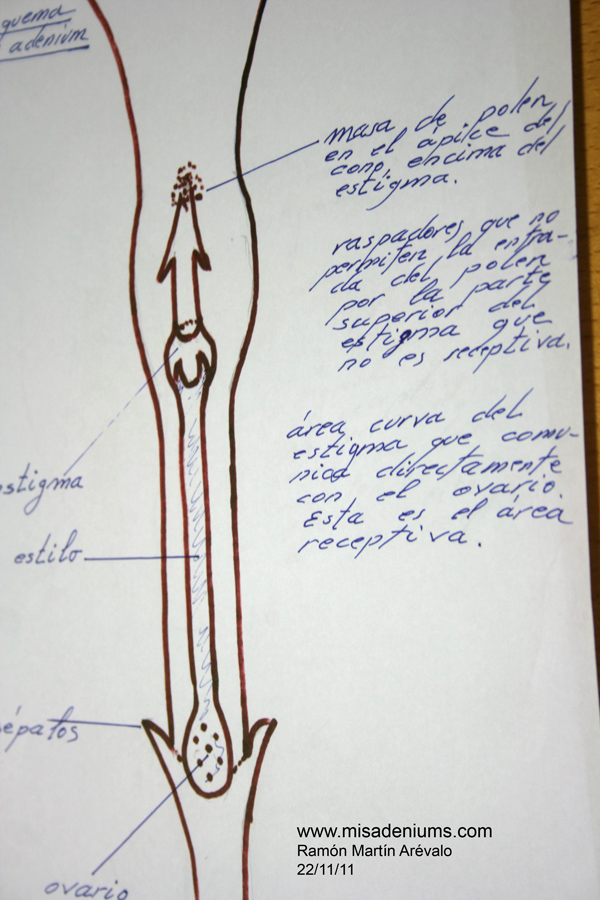 quema
adenium
masa de polen
en el ápice del
cono, encima del
estigma.
raspadores que no
permiten la entra-
da del polen
por la parte
superior del
estigma que
no es receptiva.
área curva del
estigma que comu-
nica directamente
con el ovario.
Esta es el área
receptiva.
estigma
estilo
sépalos
ovario
www.misadeniums.com
Ramón Martín Arévalo
22/11/11